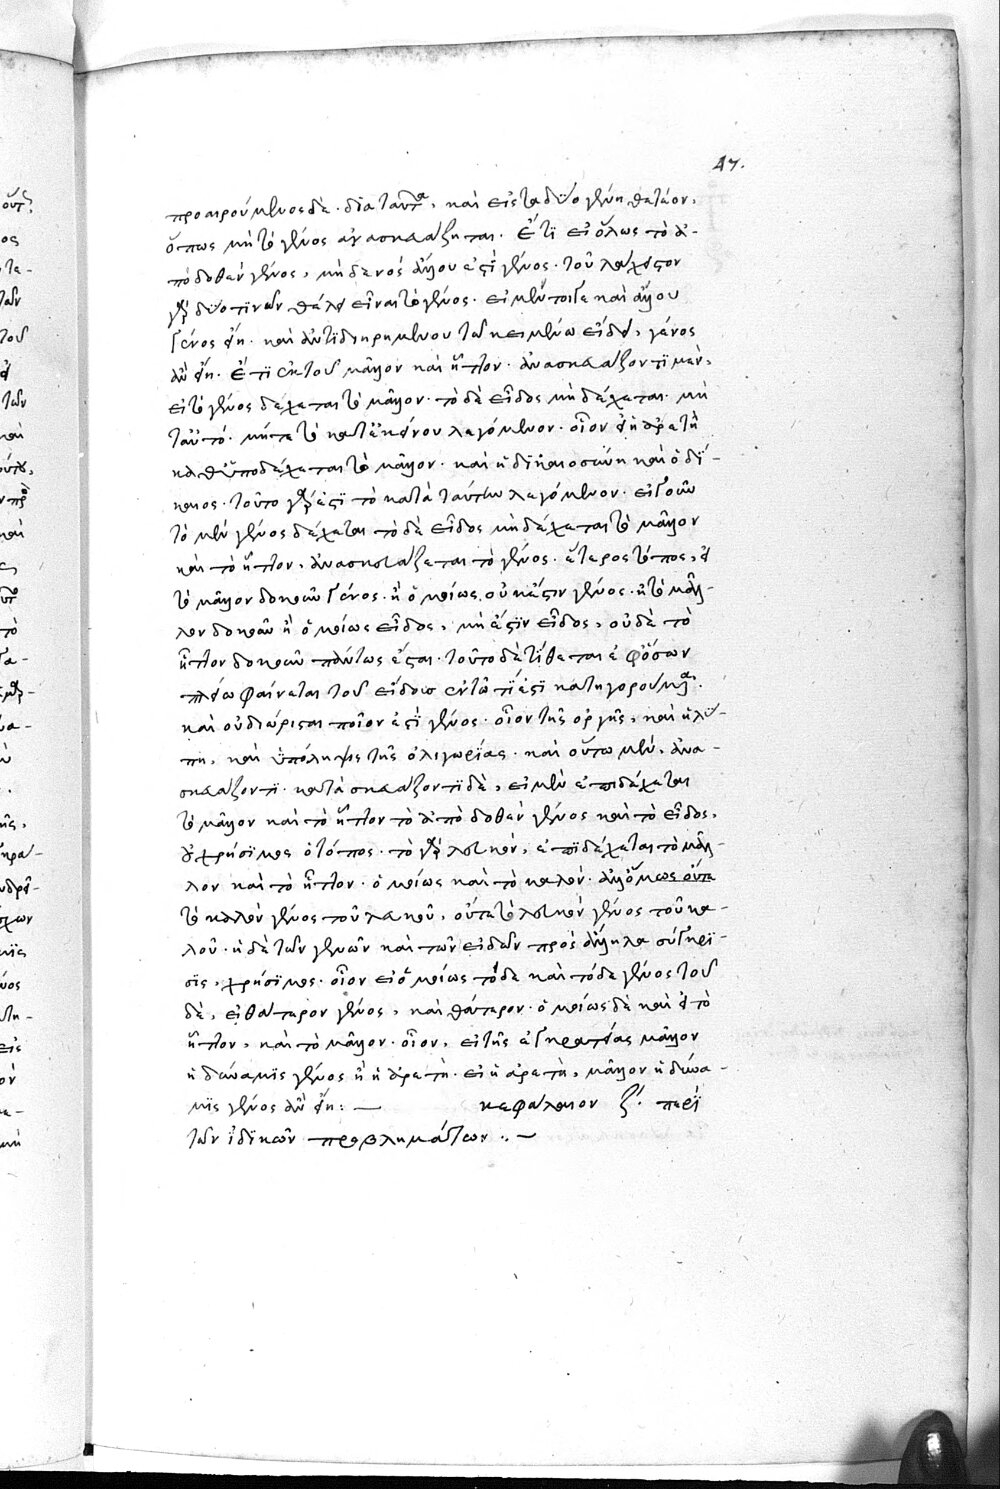 47.
προαιρούμενος δὲ· διὰ ταῦτα, καὶ εἰς τὰ δύο γένη θετέον,
ὅπως μὴ τὸ γένος ἀνασκευάζηται. ἔτι εἰ ὅλως τὸ ἀ-
ποδοθὲν γένος, μηδενός ἄλλου ἐστὶ γένος. τοὐλάχιστον
γὰρ δύο τινῶν θέλει εἶναι τὸ γένος. εἰ μέντοιγε καὶ ἄλλου
γένος εἴη. καὶ ἀντιδιῃρημένου τῶ κειμένω εἴδει, γένος
ἂν εἴη. ἔτι ἐκ τοῦ μᾶλλον καὶ ἧττον. ἀνασκευάζοντι μὲν,
εἰ τὸ γένος δέχεται τὸ μᾶλλον· τὸ δὲ εἶδος μὴ δέχεται. μὴ
ταὐτό. μήτε τὸ κατ' ἐκεῖνου λεγόμενον. οἷον εἰ ἡ ἀρετὴ
καὶ ἡ δικαιοσύνη καὶ ὁ δί-
καιος. τοῦτο γάρ ἐστι τὸ κατὰ ταύτην λεγόμενον. εἰ γοῦν
τὸ μὲν γένος δέχεται τὸ δὲ εἶδος μὴ δέχεται τὸ μᾶλλον
καὶ τὸ ἧττον, ἀνασκευάζεται τὸ γένος. ἕτερος τόπος, εἰ
τὸ μᾶλλον δοκοῦν γένος· ἢ ὁμοίως, οὐκ ἔστιν γένος. ἢ τὸ μᾶλ-
λον δοκοῦν ἢ ὁμοίως εἶδος, μὴ ἔστιν εἶδος, οὐδὲ τὸ
ἧττον δοκοῦν πάντως ἔσται. τοῦτο δὲ τίθεται ἐφ' ὅσων
πλείω φαίνεται τοῦ εἴδους ἐν τῶ τί ἐστι κατηγορούμενα.
καὶ οὐ διώρισται ποῖον ἐστὶ γένος. οἷον τῆς ὀργῆς, καὶ ἡ λύ-
πη, καὶ ὑπόληψις τῆς ὀλιγωρίας. καὶ οὕτω μὲν, ἀνα-
σκευάζοντι. κατασκευάζοντι δὲ, εἰ μὲν ἐπιδέχεται
τὸ μᾶλλον καὶ τὸ ἧττον τὸ ἀποδοθὲν γένος καὶ τὸ εἶδος,
οὐ χρήσιμος ὁ τόπος. τὸ γὰρ λευκὸν, ἐπιδέχεται τὸ μᾶλ-
λον καὶ τὸ ἧττον. ὁμοίως καὶ τὸ καλόν. ἀλλ' ὅμως οὔτε
τὸ καλὸν γένος τοῦ λευκοῦ, οὔτε τὸ λευκὸν γένος τοῦ κα-
λοῦ. ἡ δὲ τῶν γενῶν καὶ τῶν εἰδῶν πρὸς ἄλληλα σύγκρι-
σις, χρήσιμος. οἷον εἰ ὁμοίως τόδε καὶ τόδε γένος τοῦ
δὲ, εἰ θάτερον γένος, καὶ θάτερον. ὁμοίως δὲ καὶ εἰ τὸ
ἧττον, καὶ τὸ μᾶλλον. οἷον, εἰ τῆς ἐγκρατείας μᾶλλον
ἡ δύναμις γένος ἢ ἡ ἀρετὴ. εἰ ἡ ἀρετὴ, μᾶλλον ἡ δύνα-
μις γένος ἂν εἴη: — κεφάλαιον ζ΄. περὶ
τῶν ἰδικῶν προβλημάτων .. —